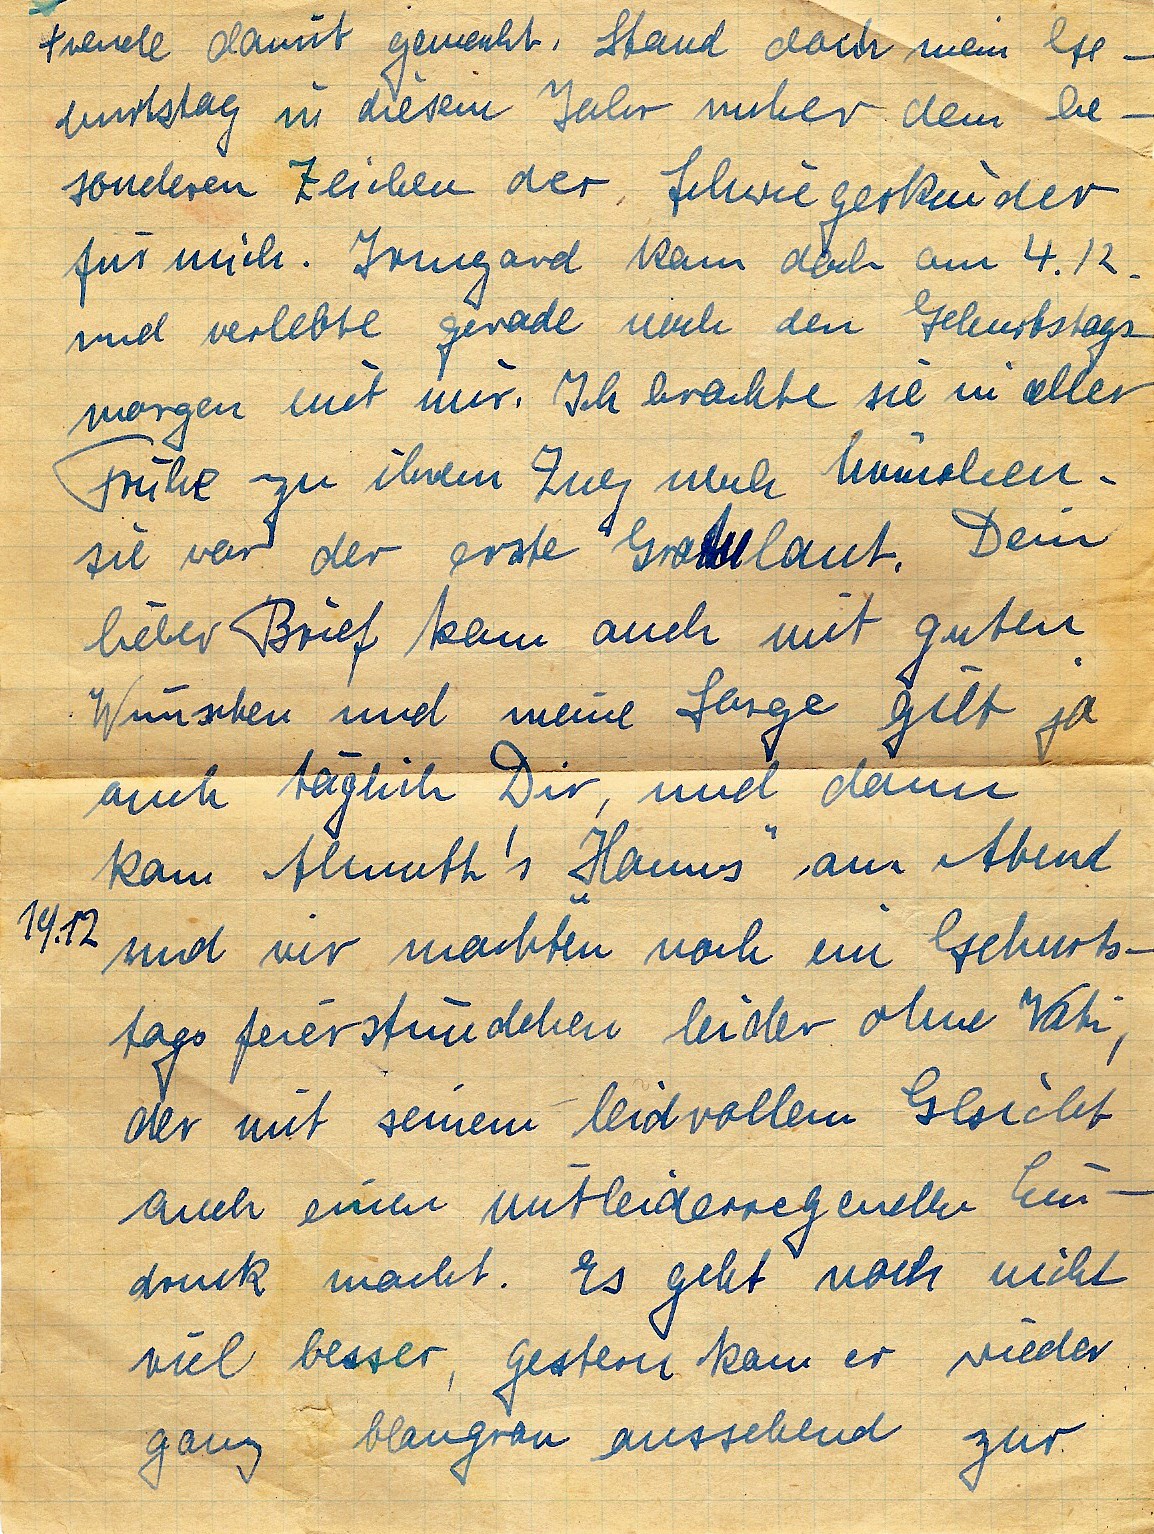 Freude damit gemacht. Stand doch mein Ge-
burtstag in diesem Jahr unter dem be-
sonderen Zeichen der Schwiegerkinder
für mich. Irmgard kam doch am 4.12.
und verlebte gerade noch den Geburtstags-
morgen mit mir. Ich brachte sie in aller
Frühe zu ihrem Zug nach München.
sie war der erste Gratulant. Dein
lieber Brief kam auch mit guten
Wünschen und meine Sorge gilt ja
auch täglich Dir, und dann
kam Almuth's "Hanns" am Abend
14.12
und wir machten noch ein Geburts-
tags feierstündchen leider ohne Vati,
der mit seinem leidvollem Gesicht
auch einen mitleiderregenden Ein-
druck macht. Es geht noch nicht
viel besser, gestern kam er wieder
ganz blaugrau aussehend zur